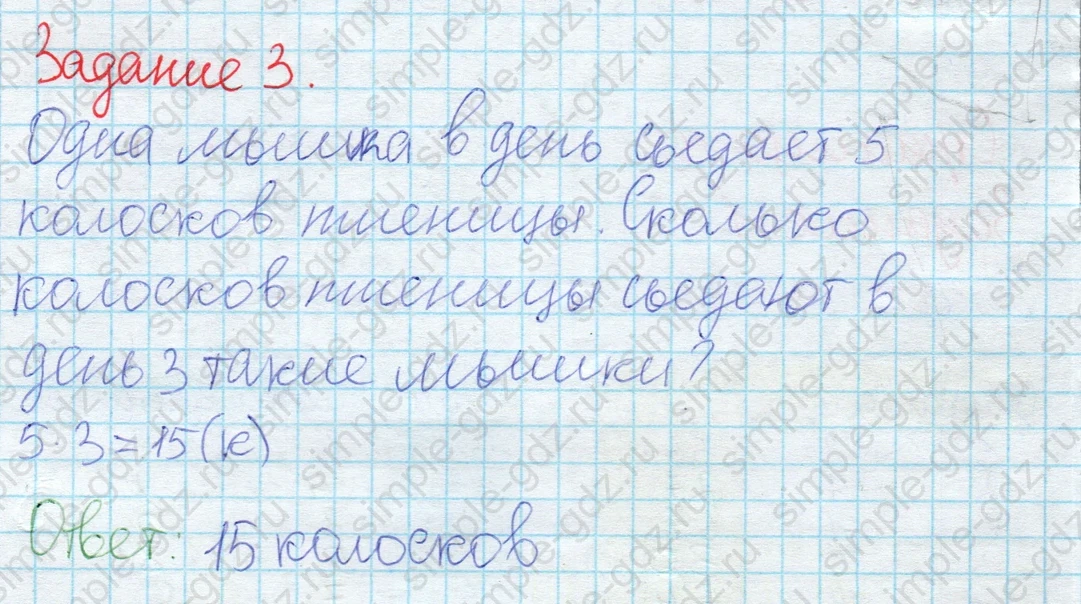 Задание 3.
Одна мышка в день съедает 5
колосков пшеницы. Сколько
колосков пшеницы съедают в
день 3 такие мышки?
5·3=15(к)
Ответ: 15 колосков
simple-gdz.ru